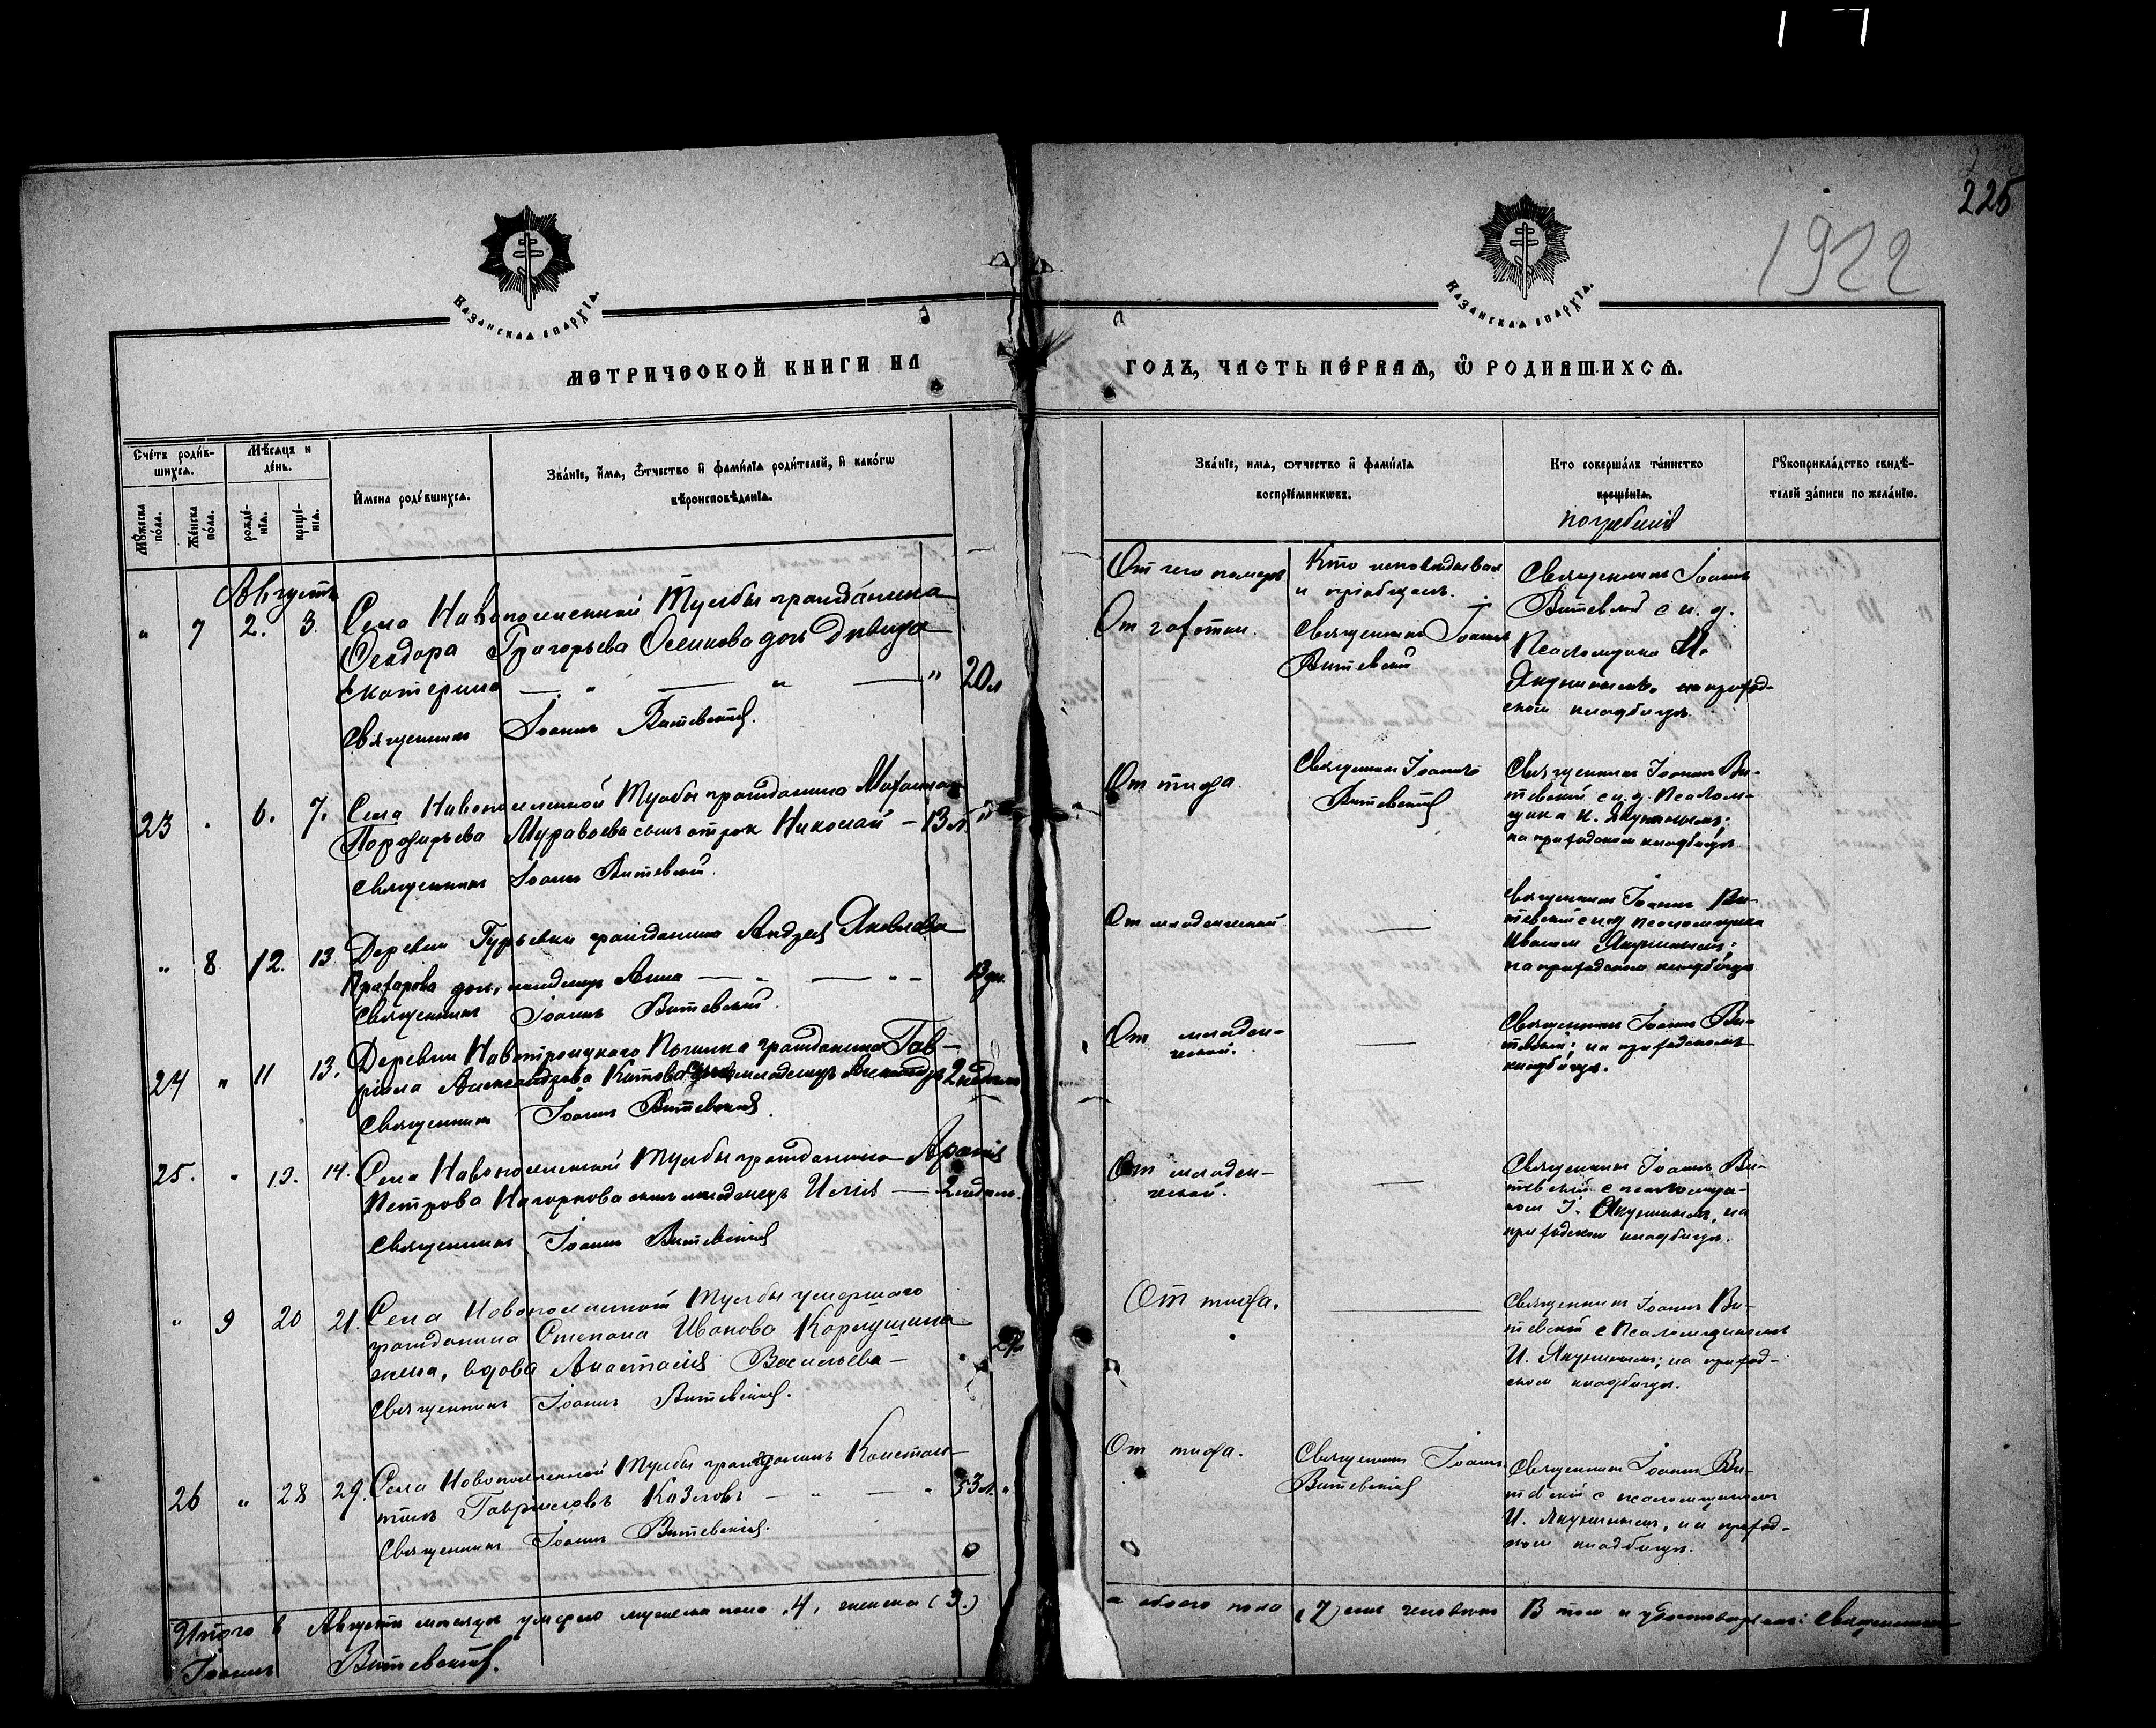 225
1922
Казанская епархія.
Казанская епархія.
МЕТРИЧЕСКОЙ КНИГИ НА
ГОДЪ, ЧАСТЬ ПЕРВАЯ, Ѡ РОДИВШИХСЯ.
Счетъ родив-
шихся.
Мѣсяцъ и
день.
Мужеска
пола.
Женска
пола.
рожде-
нія.
креще-
нія.
Имена родившихся.
Званіе, имя, ѻтчество и фамилія родителей, и какогѡ
вѣроисповѣданія.
Званіе, имя, ѻтчество и фамилія
воспріемниковъ.
Кто совершалъ таинство
крещенія.
погребенія
Рукоприкладство свидѣ-
телей записи по желанію.
Августъ
От чего померъ
Кто исповѣдывал
и пріобщалъ.
" 7 2. 3. Села Новопоселенной Тумбы гражданина
Феодора Григорьева Осипова дочь дѣвица
Екатерина — " — " — " 20 л
Священникъ Іоаннъ Витевскій.
От чахотки.
Священникъ Іоаннъ
Витевскій
Священникъ Іоаннъ
Витевскій с и. д.
Псаломщика И.
Якунинымъ, на приход-
ском кладбищѣ
23 " 6. 7. Села Новопоселенной Тумбы гражданина
Порфирьева Муравьева сынъ отрок Николай — 13 л. "
Священникъ Іоаннъ Витевскій.
От тифа
Священникъ Іоаннъ
Витевскій
Священникъ Іоаннъ Ви-
тевскій с и. д. Псалом-
щика И. Якунинымъ;
на приходском кладбищѣ
" 8 12. 13 Деревни Гурьевки гражданина Андрея Яковлева
дочь, младенецъ Анна — " — " — 13 дн.
Священникъ Іоаннъ Витевскій.
От младенческой
—
Священникъ Іоаннъ Ви-
тевскій с и. д. псаломщика
Иваном Якунинымъ;
на приходском кладбищѣ
24 " 11 13. Деревни Новотроицкого Починка гражданина Гав-
ріила Александрова Китова сынъ младенецъ 2 недѣли
Священникъ Іоаннъ Витевскій.
От младен-
ческой.
—
Священникъ Іоаннъ Ви-
тевскій; на приходскомъ
кладбищѣ.
25. " 13. 14. Села Новопоселенной Тумбы гражданина
Петрова Нагорнова сынъ младенецъ Илія — 2 недѣли.
Священникъ Іоаннъ Витевскій
От младен-
ческой.
—
Священникъ Іоаннъ Ви-
тевскій с псаломщи-
ком І. Якунинымъ, на
приходском кладбищѣ.
" 9 20 21. Села Новопоселенной Тумбы умершаго
гражданина Степана Иванова
жена, вдова Анастасія Васильева —
Священникъ Іоаннъ Витевскій.
От тифа.
—
Священникъ Іоаннъ Ви-
тевскій с Псаломщикомъ
И. Якунинымъ; на приход-
ском кладбищѣ.
26 " 28 29. Села Новопоселенной Тумбы гражданинъ Констан-
тинъ Гавриловъ Козловъ — " — " 53 л. "
Священникъ Іоаннъ Витевскій.
От тифа.
Священникъ Іоаннъ
Витевскій
Священникъ Іоаннъ Ви-
тевскій с псаломщикомъ
И. Якунинымъ, на приход-
ком кладбищѣ.
Итого в Августѣ месяцѣ умерло мужеска пола 4, женска (3.)
а обоего пола (7) семь человѣкъ В том и удостовѣряемъ: Священникъ
Іоаннъ Витевскій.